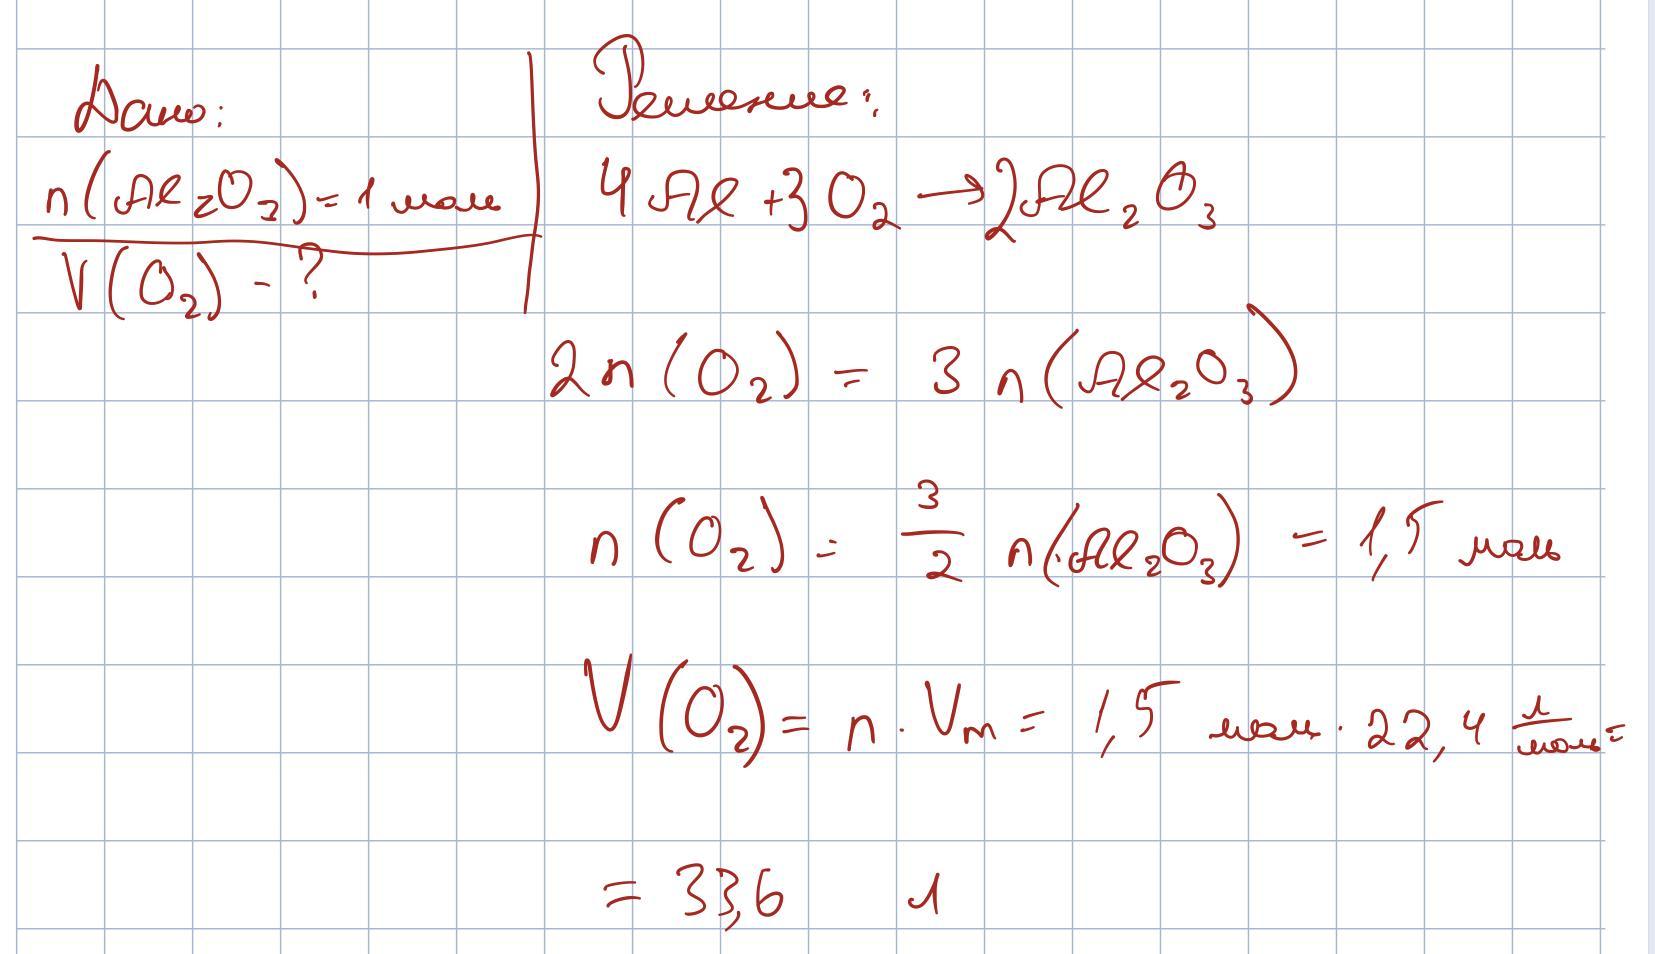 Дано:
n(Al₂O₃) = 1 моль
V(O₂) - ?
Решение:
4Al + 3O₂ → 2Al₂O₃
2n(O₂) = 3n(Al₂O₃)
n(O₂) = 3/2 n(Al₂O₃) = 1,5 моль
V(O₂) = n · Vm = 1,5 моль · 22,4 л/моль =
= 33,6 л